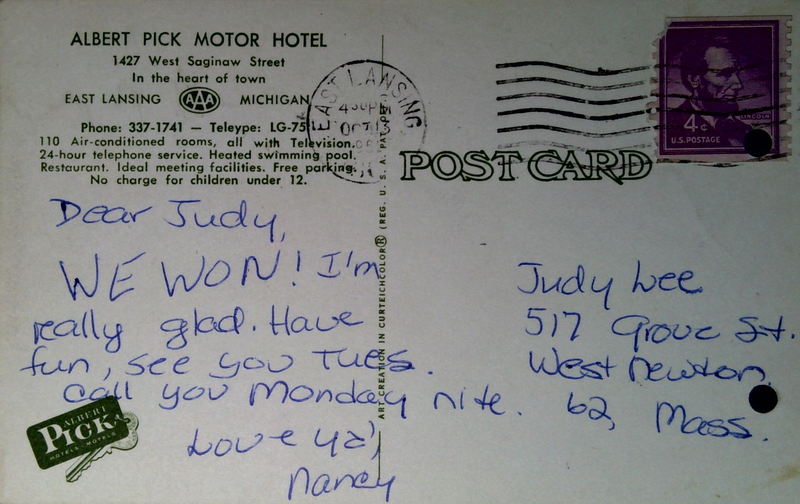 ALBERT PICK MOTOR HOTEL
1427 West Saginaw Street
In the heart of town
EAST LANSING AAA MICHIGAN
Phone: 337-1741 — Teleype: LG-75
110 Air-conditioned rooms, all with Television.
24-hour telephone service. Heated swimming pool.
Restaurant. Ideal meeting facilities. Free parking.
No charge for children under 12.
EAST LANSING
430PM
OCT 13
LINCOLN
4¢
U.S. POSTAGE
POST CARD
ART CREATION IN CURTEICHCOLOR® (REG. U. S. A. PAT. OFF.
Dear Judy,
WE WON! I'm
really glad. Have
fun, see you Tues.
Call you Monday nite.
Love ya',
Nancy
Judy Lee
517 Grove St.
West Newton
62, Mass.
ALBERT
PICK
HOTELS MOTELS